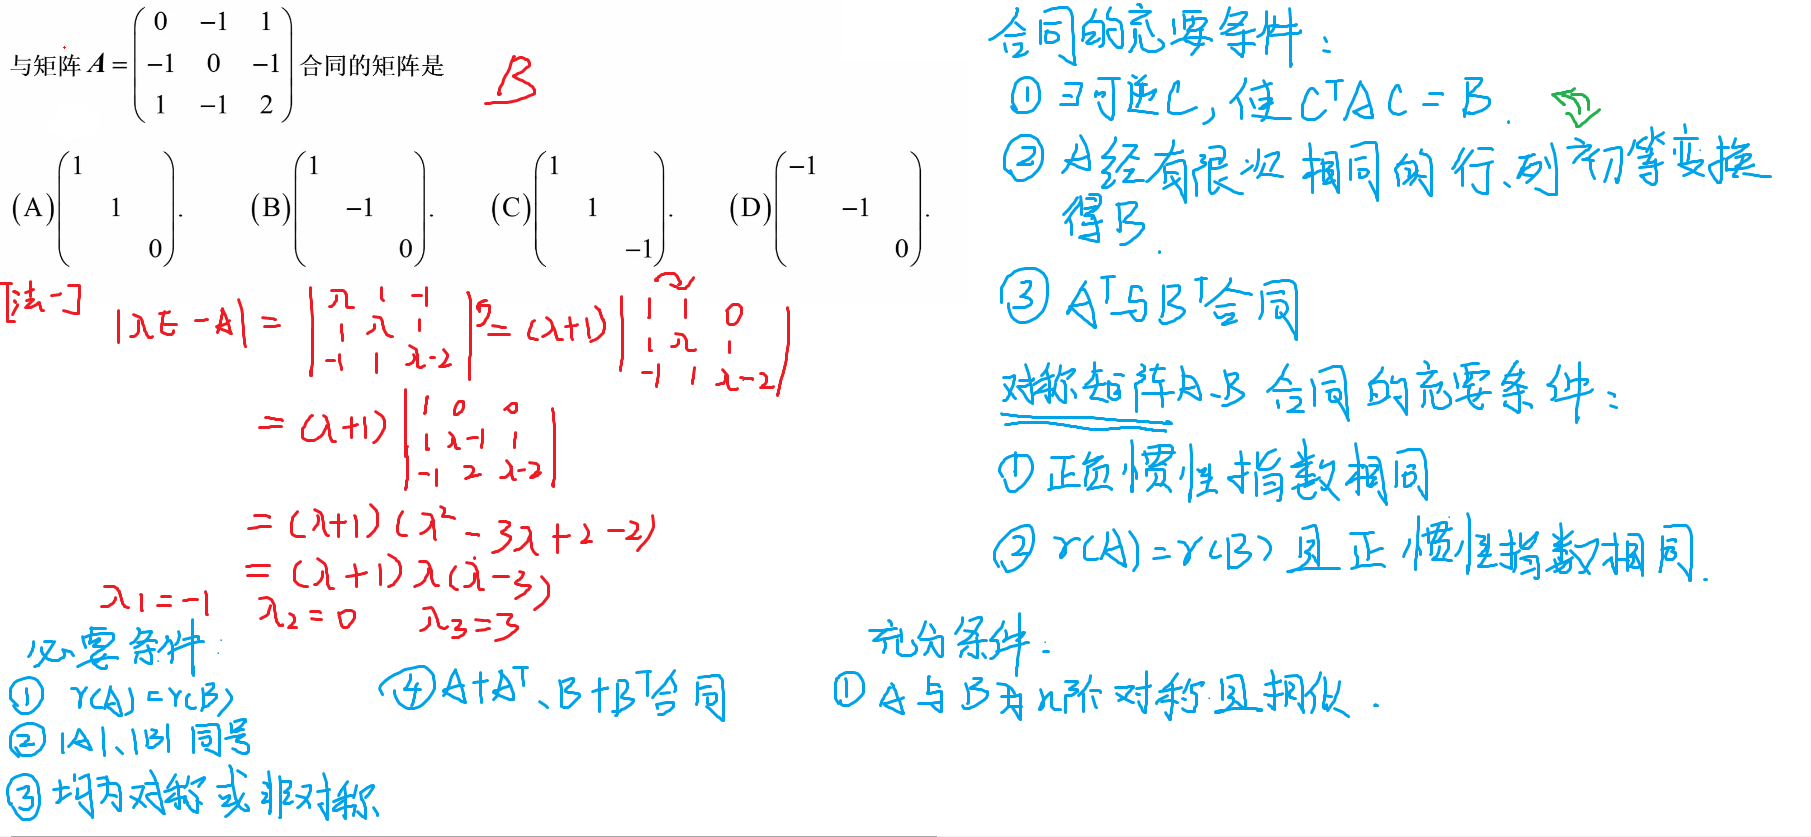 与矩阵 A = ( 0 −1 1 ; −1 0 −1 ; 1 −1 2 ) 合同的矩阵是 B
(A) ( 1 1 0 ). (B) ( 1 −1 0 ). (C) ( 1 1 −1 ). (D) ( −1 −1 0 ).
[法一]
|λE − A| = | λ 1 −1 ; 1 λ 1 ; −1 1 λ−2 | = (λ+1) | 1 1 0 ; 1 λ 1 ; −1 1 λ−2 |
= (λ+1) | 1 0 0 ; 1 λ−1 1 ; −1 2 λ−2 |
= (λ+1)(λ² − 3λ + 2 − 2)
= (λ+1) λ (λ−3)
λ1 = −1 λ2 = 0 λ3 = 3
必要条件:
① r(A) = r(B)
② |A|、|B| 同号
③ 均为对称或非对称
④ A+Aᵀ、B+Bᵀ合同
合同的充要条件:
① ∃可逆C, 使 CᵀAC = B.
② A经有限次相同的行、列初等变换
得B.
③ Aᵀ与Bᵀ合同
对称矩阵A、B 合同的充要条件:
① 正负惯性指数相同
② r(A) = r(B) 且正惯性指数相同.
充分条件:
① A与B为n阶对称且相似.